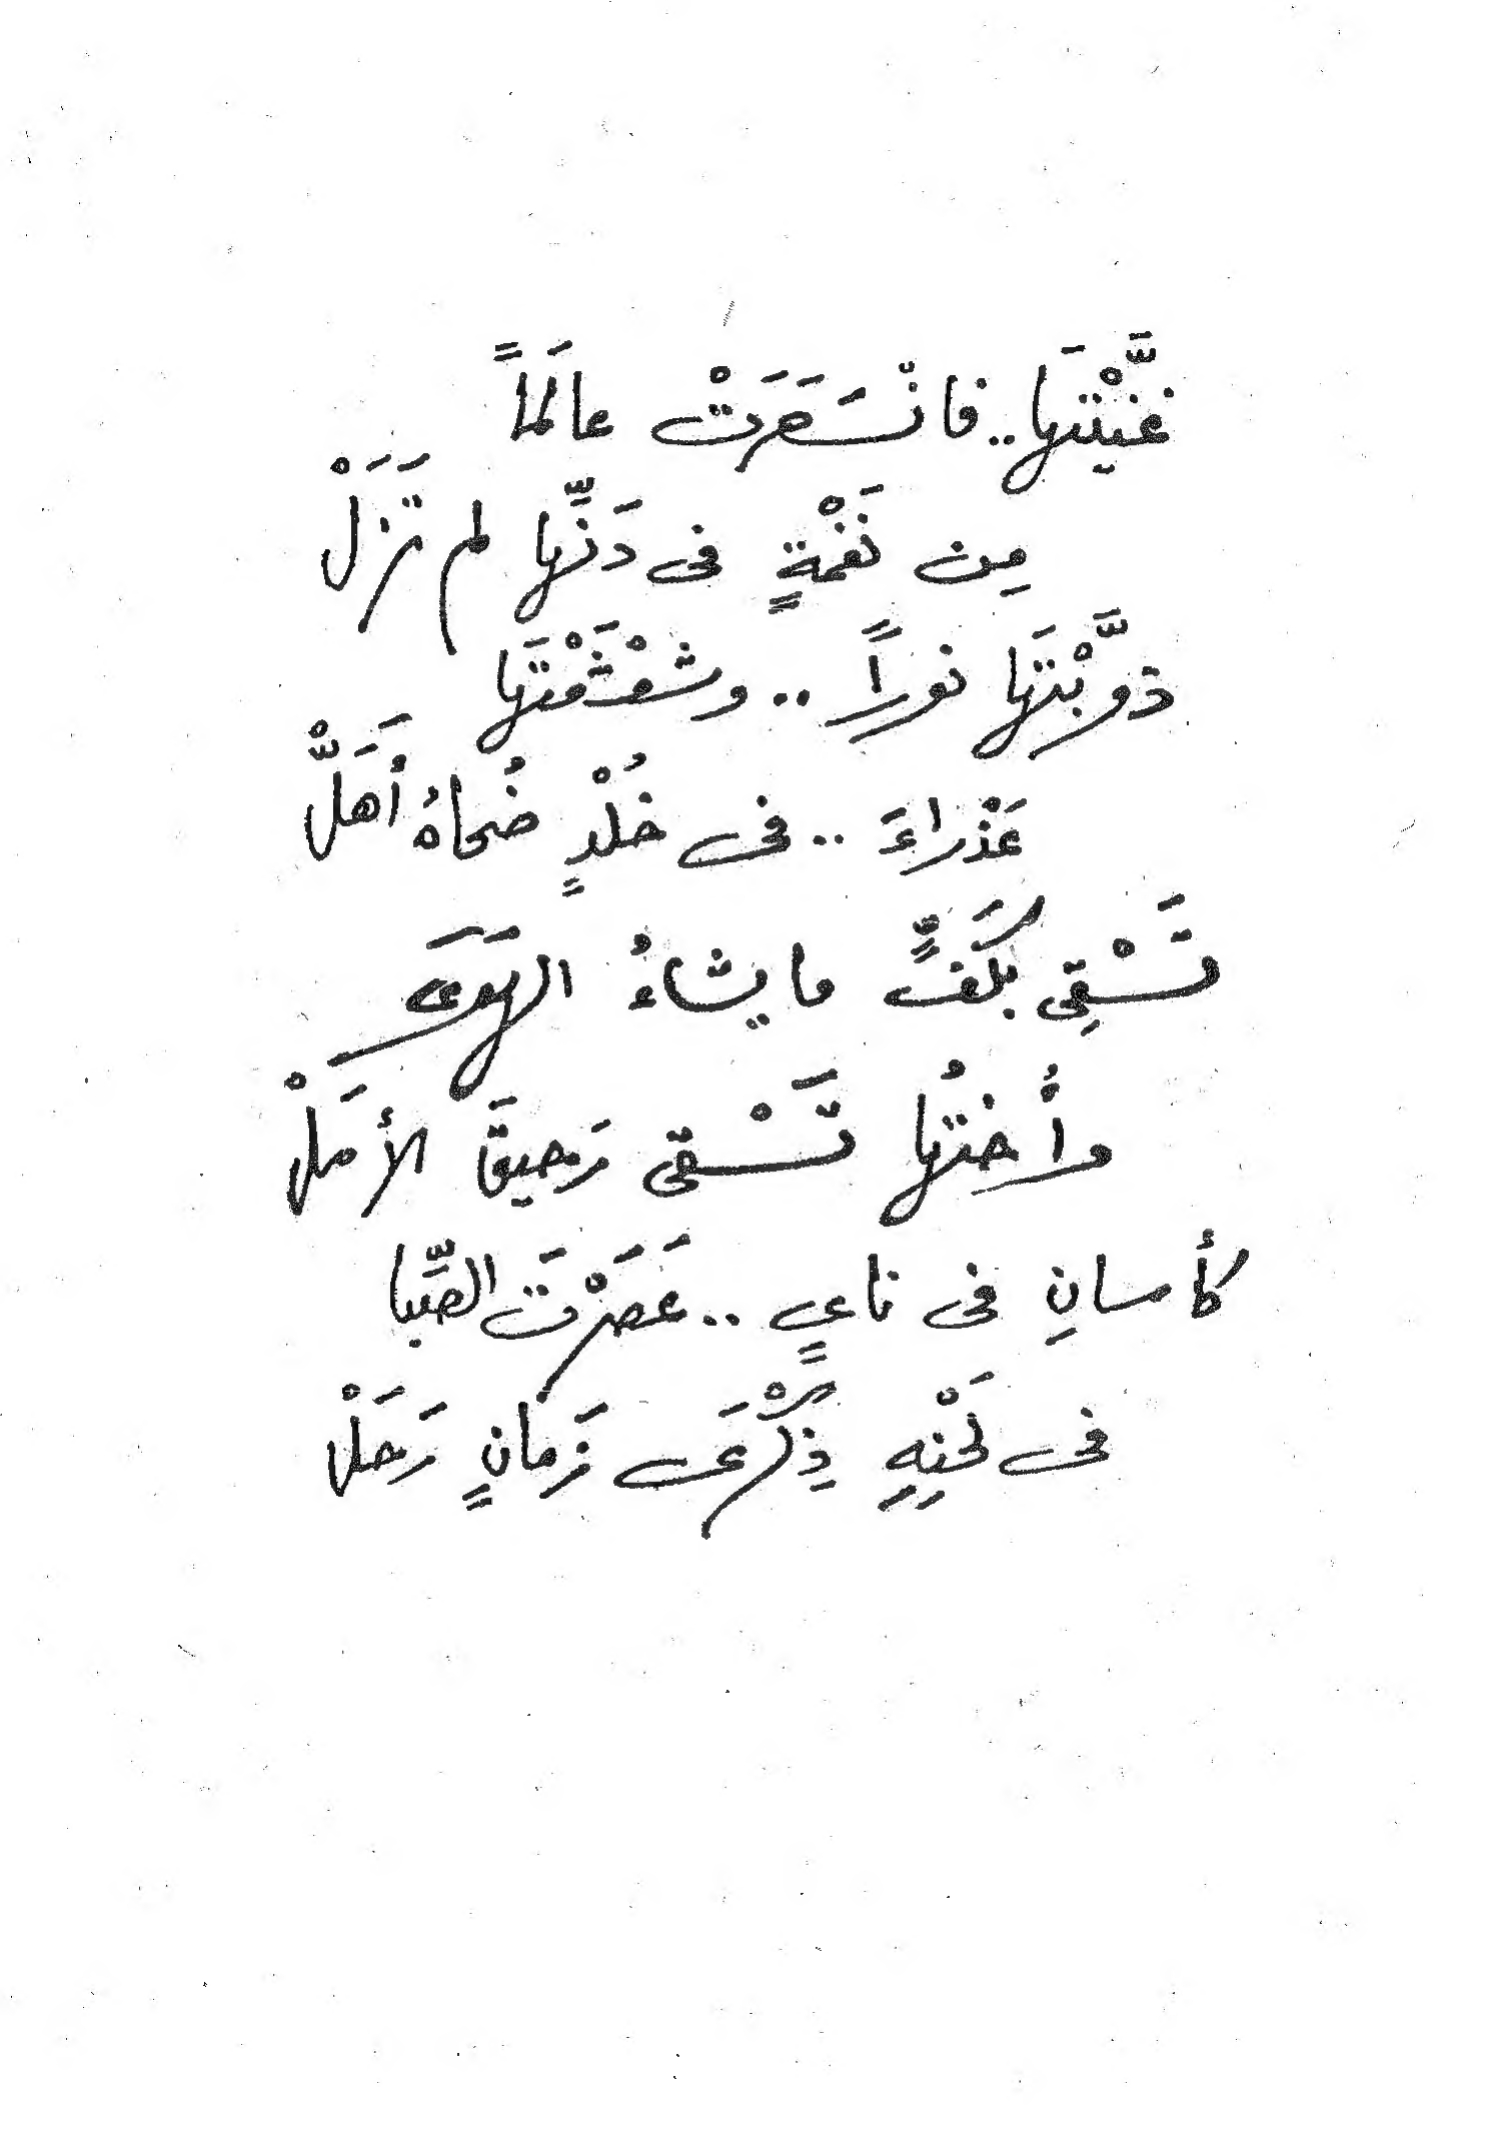 غَنَّيْتَهَا.. فانْسَهَرَتْ عالَماً
مِن نَغْمَةٍ فى دَنِّها لم تَزَلْ
ذوَّبْتَهَا نوراً .. وشَعْشَعْتَهَا
عَذْراءَ .. فى خُلْدٍ ضُحاهُ أَهَلّْ
تَسْقِى بكَفٍّ ما يشاءُ الهَوَى
وأُختُها تَسْقى رَحيقَ الأمَلْ
كأسانِ فى ناىٍ .. عَصَرْتَ الصِّبا
فى لَحْنِهِ ذِكْرَى زَمانٍ رَحَلْ